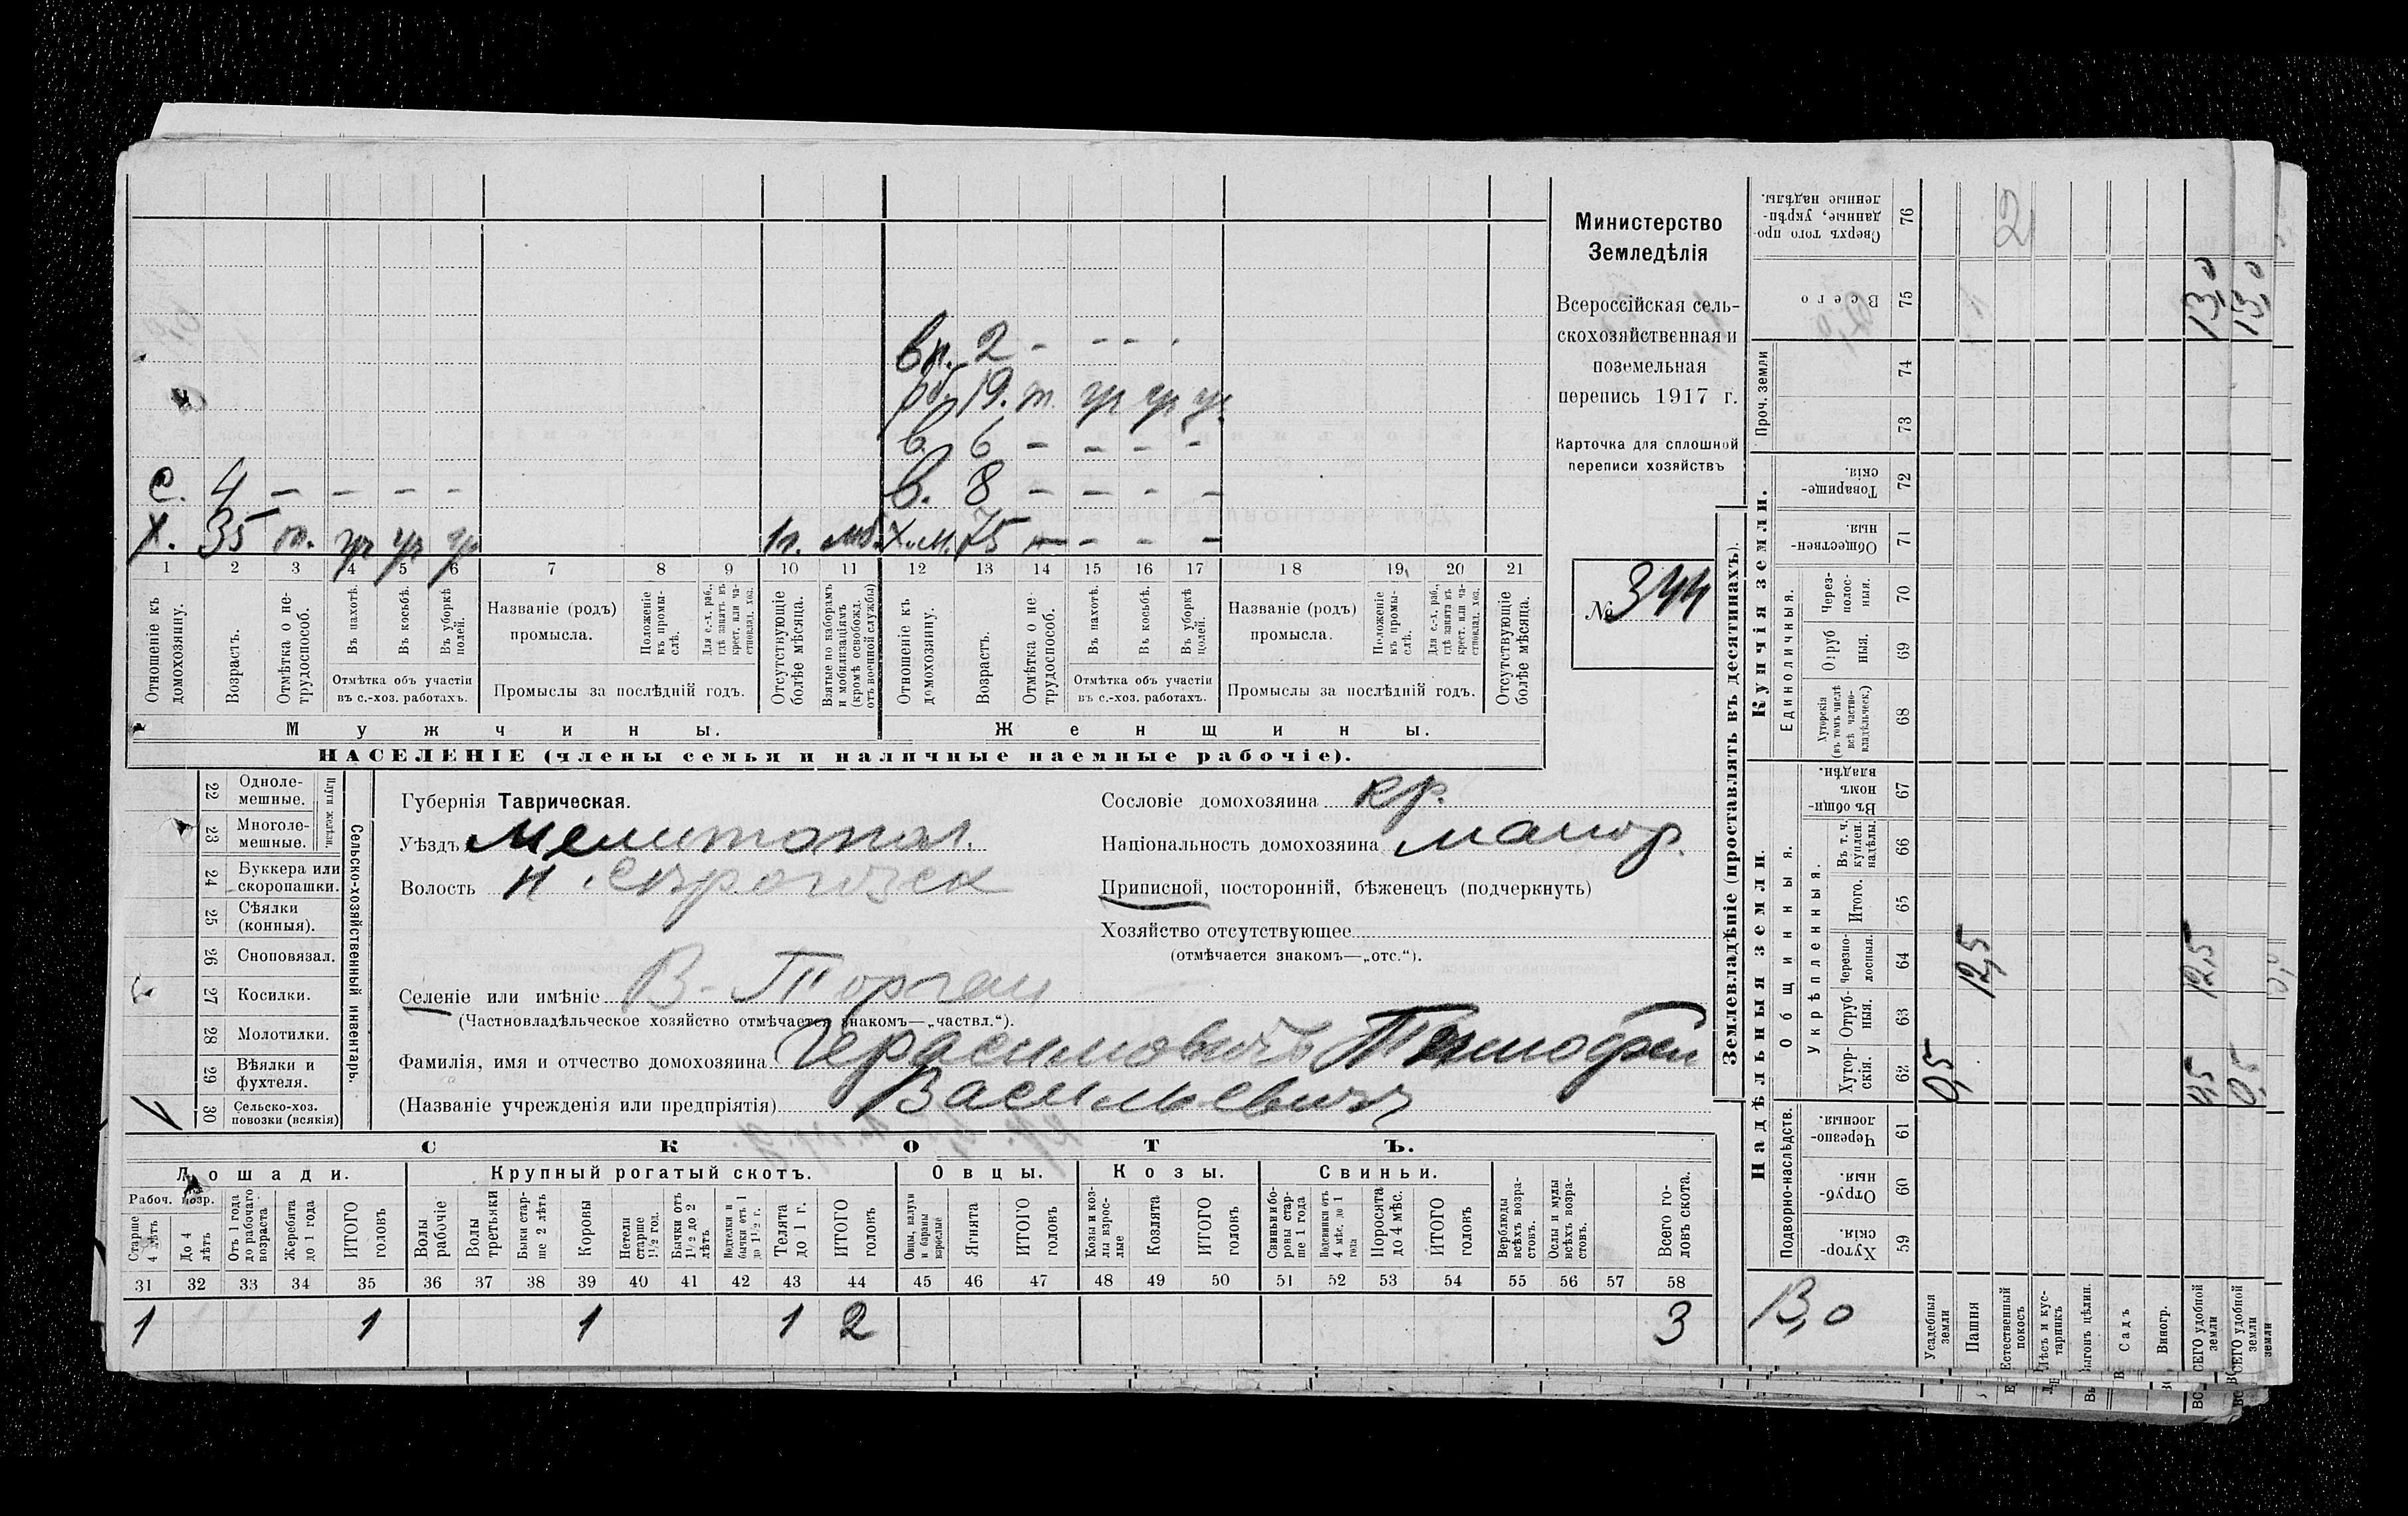 Министерство
Земледѣлія
Всероссійская сель-
скохозяйственная и
поземельная
перепись 1917 г.
Карточка для сплошной
переписи хозяйствъ
№ 344
вн. 2 - - - -
19. т.
в. 6 - - - -
с. 4 - - - -
в. 8 - - - -
х. 35 т.
1п. мб.
х.м. 75 - - -
1 2 3 4 5 6 7 8 9 10 11 12 13 14 15 16 17 18 19 20 21
Отношеніе къ домохозяину.
Возрастъ.
Отмѣтка о не-трудоспособ.
Въ пахотѣ.
Въ косьбѣ.
Въ уборкѣ полей.
Отмѣтка объ участіи въ с.-хоз. работахъ.
Названіе (родъ) промысла.
Положеніе въ промы-слѣ.
Для с.-х. раб., гдѣ занятъ въ крест. или ча-стновлад. хоз.
Промыслы за послѣдній годъ.
Отсутствующіе болѣе мѣсяца.
Взятые по наборамъ и мобилизаціямъ (кромѣ освобожд. отъ военной службы)
Отношеніе къ домохозяину.
Возрастъ.
Отмѣтка о не-трудоспособ.
Въ пахотѣ.
Въ косьбѣ.
Въ уборкѣ полей.
Отмѣтка объ участіи въ с.-хоз. работахъ.
Названіе (родъ) промысла.
Положеніе въ промы-слѣ.
Для с.-х. раб., гдѣ занята въ крест. или ча-стновлад. хоз.
Промыслы за послѣдній годъ.
Отсутствующіе болѣе мѣсяца.
Мужчины.
Женщины.
НАСЕЛЕНІЕ (члены семьи и наличные наемные рабочіе).
Сельско-хозяйственный инвентарь.
Плуги желѣзн.
22 Одноле-мешные.
23 Многоле-мешные.
24 Буккера или скоропашки.
25 Сѣялки (конныя).
26 Сноповязал.
27 Косилки.
28 Молотилки.
29 Вѣялки и фухтеля.
30 Сельско-хоз. повозки (всякія) 1
Губернія Таврическая.
Уѣздъ Мелитопол.
Волость Н. Сѣрогозск
Селеніе или имѣніе В-Торгаи
(Частновладѣльческое хозяйство отмѣчается знакомъ—„частвл.“).
Фамилія, имя и отчество домохозяина Герасимовичъ Тимофей
(Названіе учрежденія или предпріятія) Васильевичъ
Сословіе домохозяина кр.
Національность домохозяина малор.
Приписной, посторонній, бѣженецъ (подчеркнуть)
Хозяйство отсутствующее
(отмѣчается знакомъ—„отс.“).
СКОТЪ.
Лошади.
Крупный рогатый скотъ.
Овцы.
Козы.
Свиньи.
Рабоч. возр.
Старше 4 лѣтъ
До 4 лѣтъ
Отъ 1 года до рабочаго возраста
Жеребята до 1 года
ИТОГО головъ
Волы рабочіе
Волы третьяки
Быки стар-ше 2 лѣтъ
Коровы
Нетели старше 1½ год.
Бычки отъ 1½ до 2 лѣтъ
Подтелки и бычки отъ 1 до 1½ г.
Телята до 1 г.
ИТОГО головъ
Овцы, валухи и бараны взрослые
Ягнята
ИТОГО головъ
Козы и коз-лы взрос-лые
Козлята
ИТОГО головъ
Свиньи и бо-ровы стар-ше 1 года
Подсвинки отъ 4 мѣс. до 1 года
Поросята до 4 мѣс.
ИТОГО головъ
Верблюды всѣхъ возра-стовъ.
Ослы и мулы всѣхъ возра-стовъ.
Всего го-ловъ скота.
31 32 33 34 35 36 37 38 39 40 41 42 43 44 45 46 47 48 49 50 51 52 53 54 55 56 57 58
1 1 1 1 2 3
Землевладѣніе (проставлять въ десятинахъ).
Надѣльныя земли.
Купчія земли.
Проч. земли
Подворно-наслѣдств.
Общинныя.
Укрѣпленныя.
Единоличныя.
Сверхъ того про-данные, укрѣп-ленные надѣлы. 76
Всего 75
74
73
Товарище-скія. 72
Обществен-ныя. 71
Через-полос-ныя. 70
Отруб-ныя. 69
Хуторскія (въ томъ числѣ всѣ частно-владѣльческ.) 68
Въ общин-номъ владѣн. 67
Въ т. ч. куплен. надѣлы. 66
Итого. 65
Черезпо-лосныя. 64
Отруб-ныя. 63
Хутор-скія. 62
Черезпо-лосныя. 61
Отруб-ныя. 60
Хутор-скія. 59
Усадебныя земли 0,5
Пашня 12,5
Естественный покосъ
Лѣсъ и кус-тарникъ
Выгонъ цѣлин.
Садъ
Виногр.
ВСЕГО удобной земли 12,5 13,0
ВСЕГО удобной земли 0,5 13,0
2